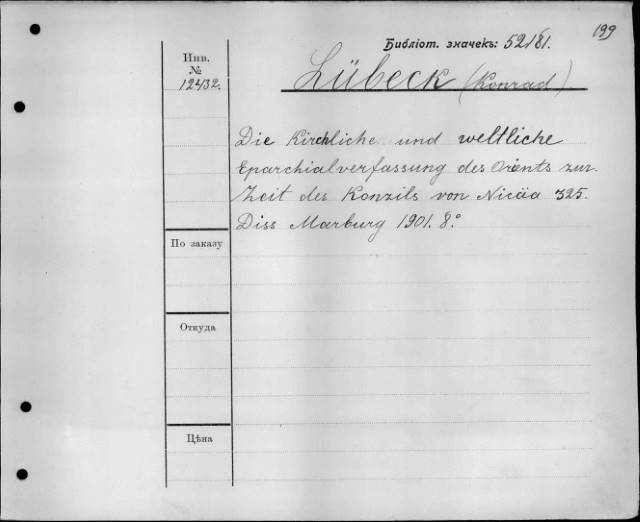 199
Библіот. значекъ: 52/81.
Инв.
№
12432.
Lübeck (Konrad)
Die Kirchliche und weltliche
Eparchialverfassung des Orients zur
Zeit des Konzils von Nicäa 325.
Diss Marburg 1901. 8.°
По заказу
Откуда
Цѣна